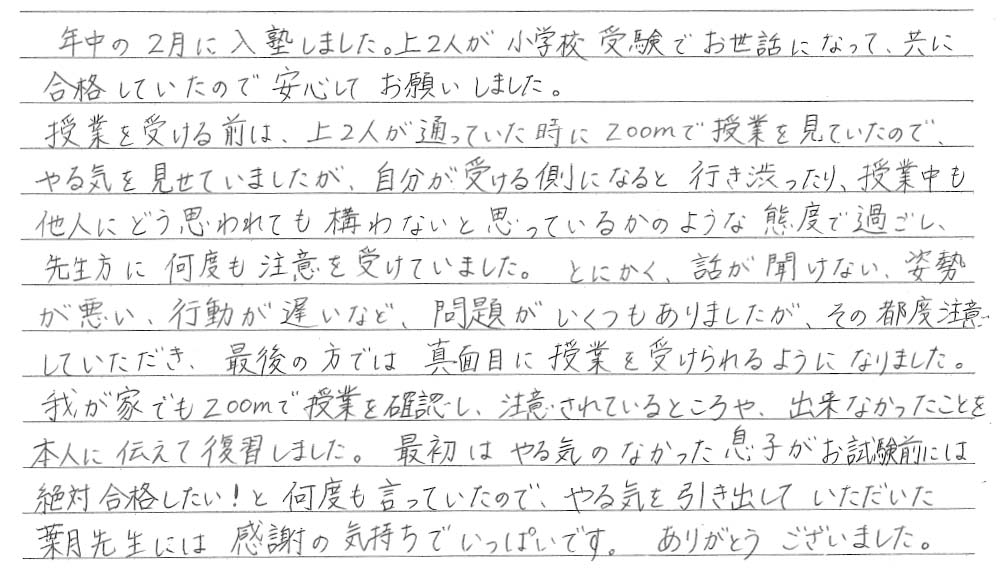 年中の2月に入塾しました。上2人が小学校受験でお世話になって、共に
合格していたので安心してお願いしました。
授業を受ける前は、上2人が通っていた時にZoomで授業を見ていたので、
やる気を見せていましたが、自分が受ける側になると行き渋ったり、授業中も
他人にどう思われても構わないと思っているかのような態度で過ごし、
先生方に何度も注意を受けていました。とにかく、話が聞けない、姿勢
が悪い、行動が遅いなど、問題がいくつもありましたが、その都度注意
していただき、最後の方では真面目に授業を受けられるようになりました。
我が家でもZoomで授業を確認し、注意されているところや、出来なかったことを
本人に伝えて復習しました。最初はやる気のなかった息子がお試験前には
絶対合格したい!と何度も言っていたので、やる気を引き出していただいた
葉月先生には感謝の気持ちでいっぱいです。ありがとうございました。